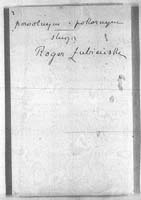 powolnym i pokornym
sługą
Roger Łubieński